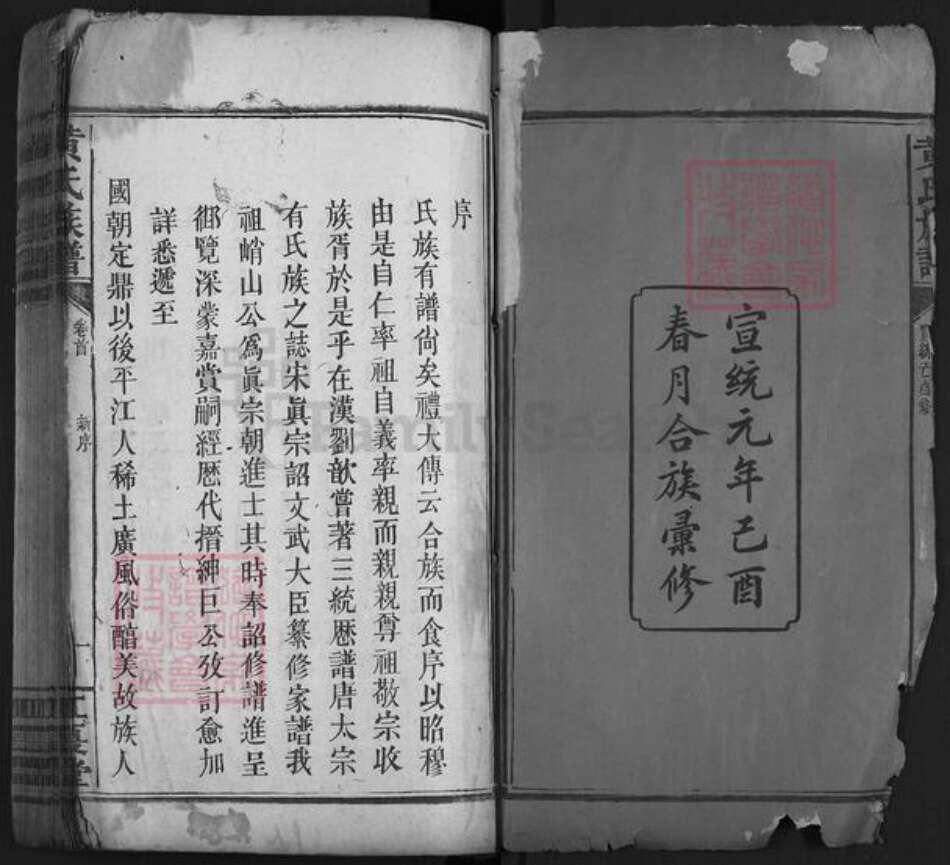 黄氏族譜
宣統元年己酉
春月合族彙修
序
氏族有譜尚矣禮大傳云合族而食序以昭穆
由是自仁率祖自義率親而親親尊祖敬宗收
族胥於是乎在漢劉歆嘗著三統厯譜唐太宗
有氏族之誌宋眞宗詔文武大臣纂修家譜我
祖峭山公爲眞宗朝進士其時奉詔修譜進呈
御覽深蒙嘉賞嗣經厯代搢紳巨公攷訂愈加
詳悉遞至
國朝定鼎以後平江人稀土廣風俗醕美故族人
黄氏族譜
卷首
新序
一
堂